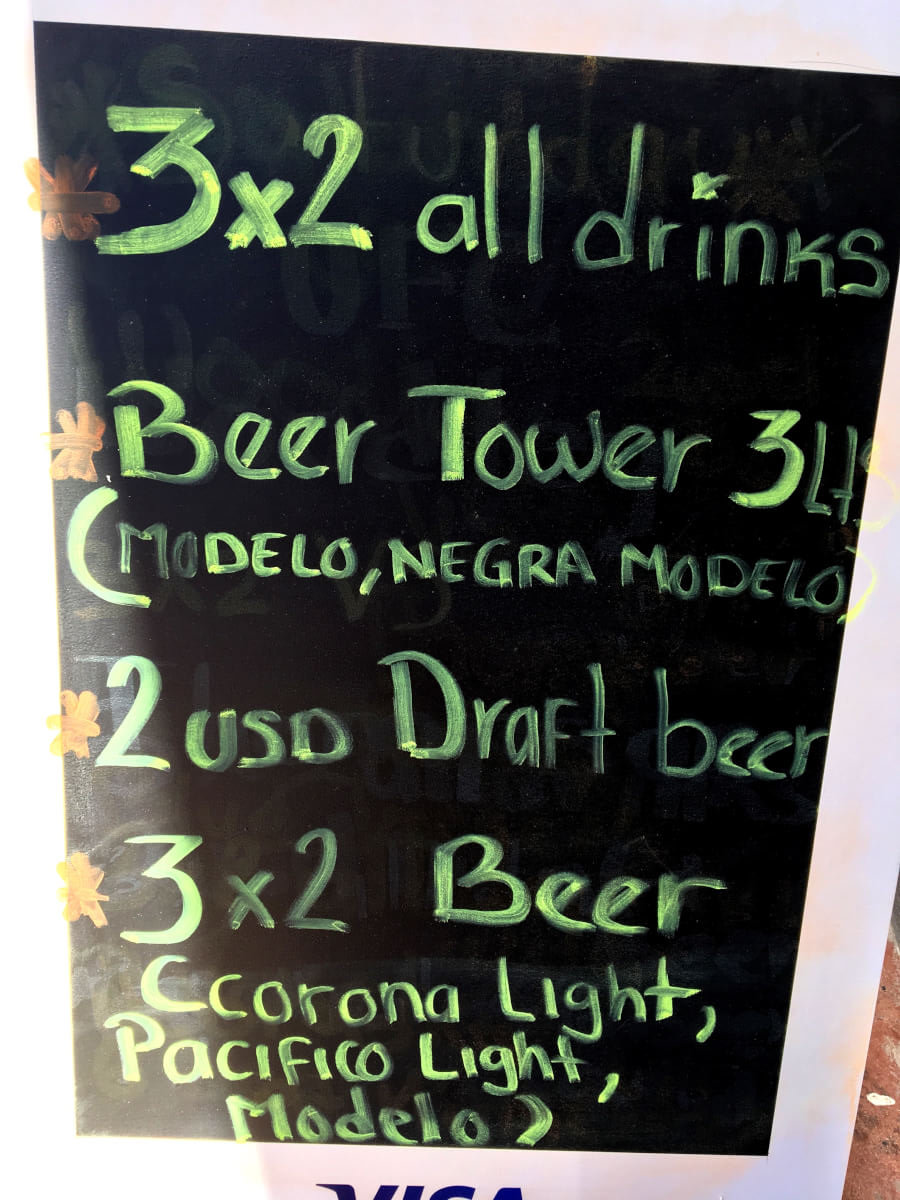 3x2 all drinks
Beer Tower 3Lts
(MODELO, NEGRA MODELO)
2 USD Draft beer
3x2 Beer
(corona Light,
Pacifico Light,
Modelo)
VISA